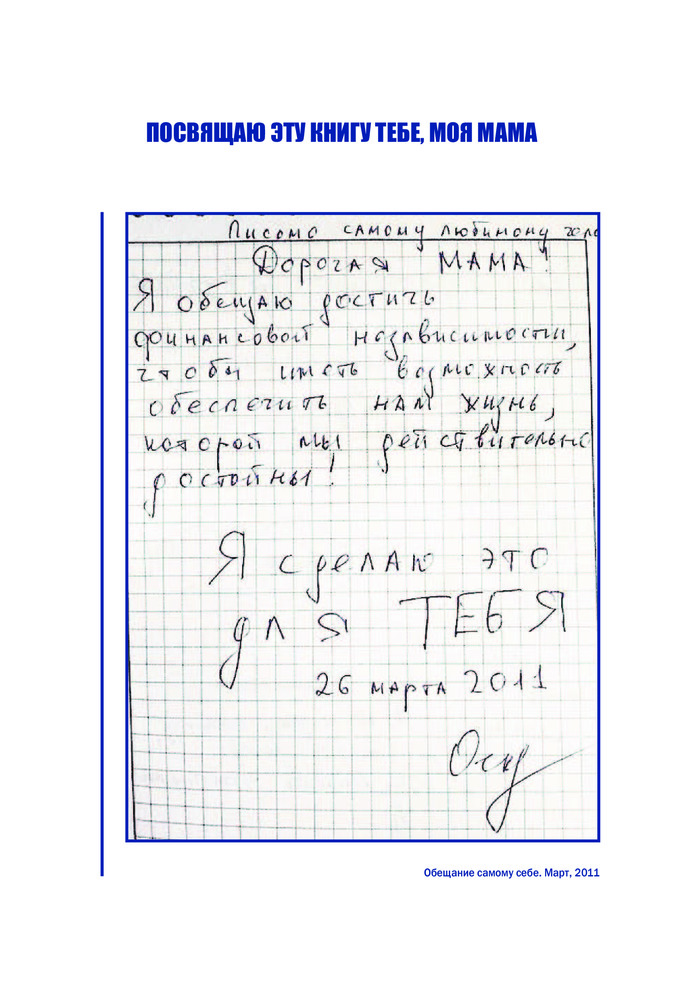 ПОСВЯЩАЮ ЭТУ КНИГУ ТЕБЕ, МОЯ МАМА
Письмо самому любимому чело
Дорогая МАМА!
Я обещаю достичь
финансовой независимости,
чтобы иметь возможность
обеспечить нам жизнь,
которой мы действительно
достойны!
Я сделаю это
для ТЕБЯ
26 марта 2011
Обещание самому себе. Март, 2011